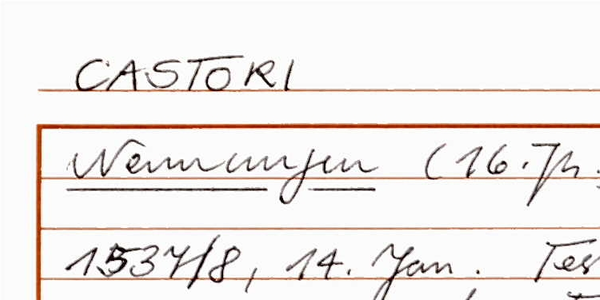 CASTORI
Nennungen (16. Jh.
1537/8, 14. Jan. Tes